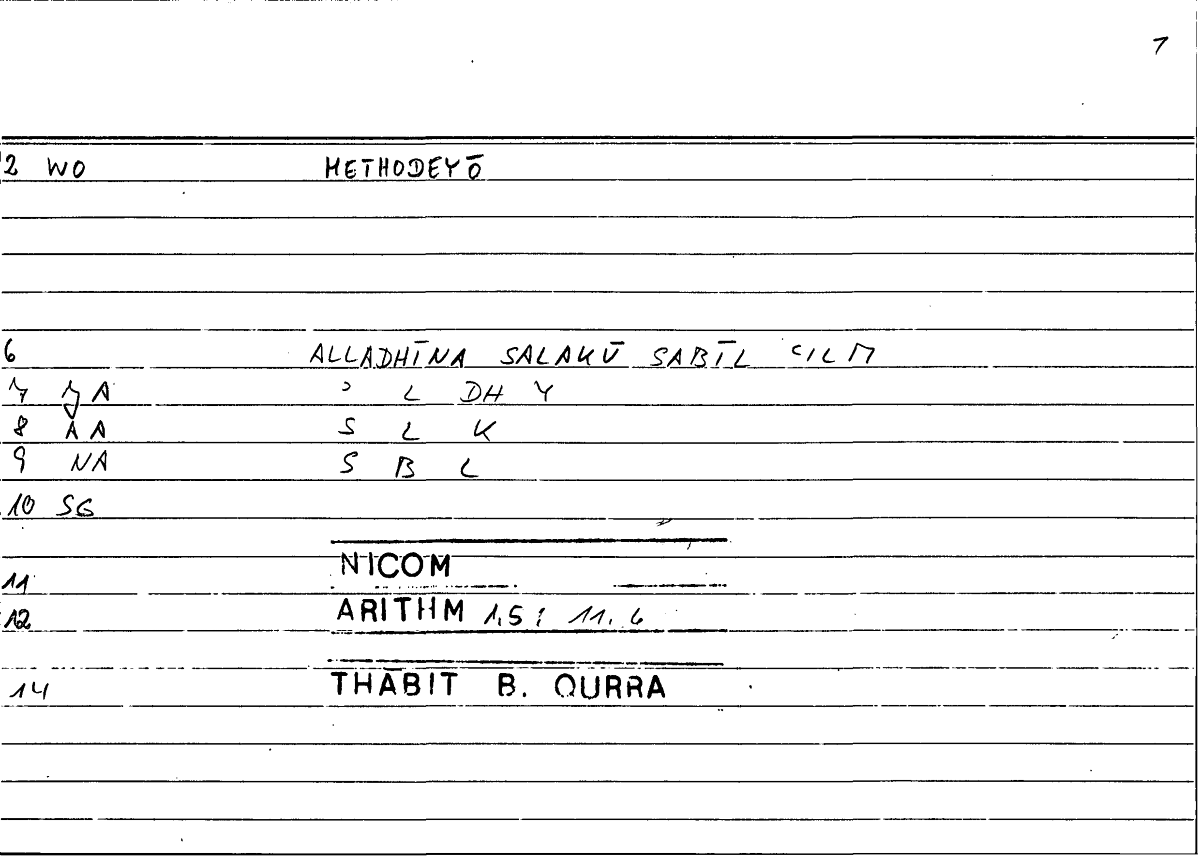 1
2 WO METHODEYŌ
6 ALLADHĪNA SALAKŪ SABĪL ʿILM
7 JA ʾ L DH Y
8 AA S L K
9 NA S B L
10 SG
11 NICOM
12 ARITHM 1,5; 11. 6
14 THĀBIT B. QURRA